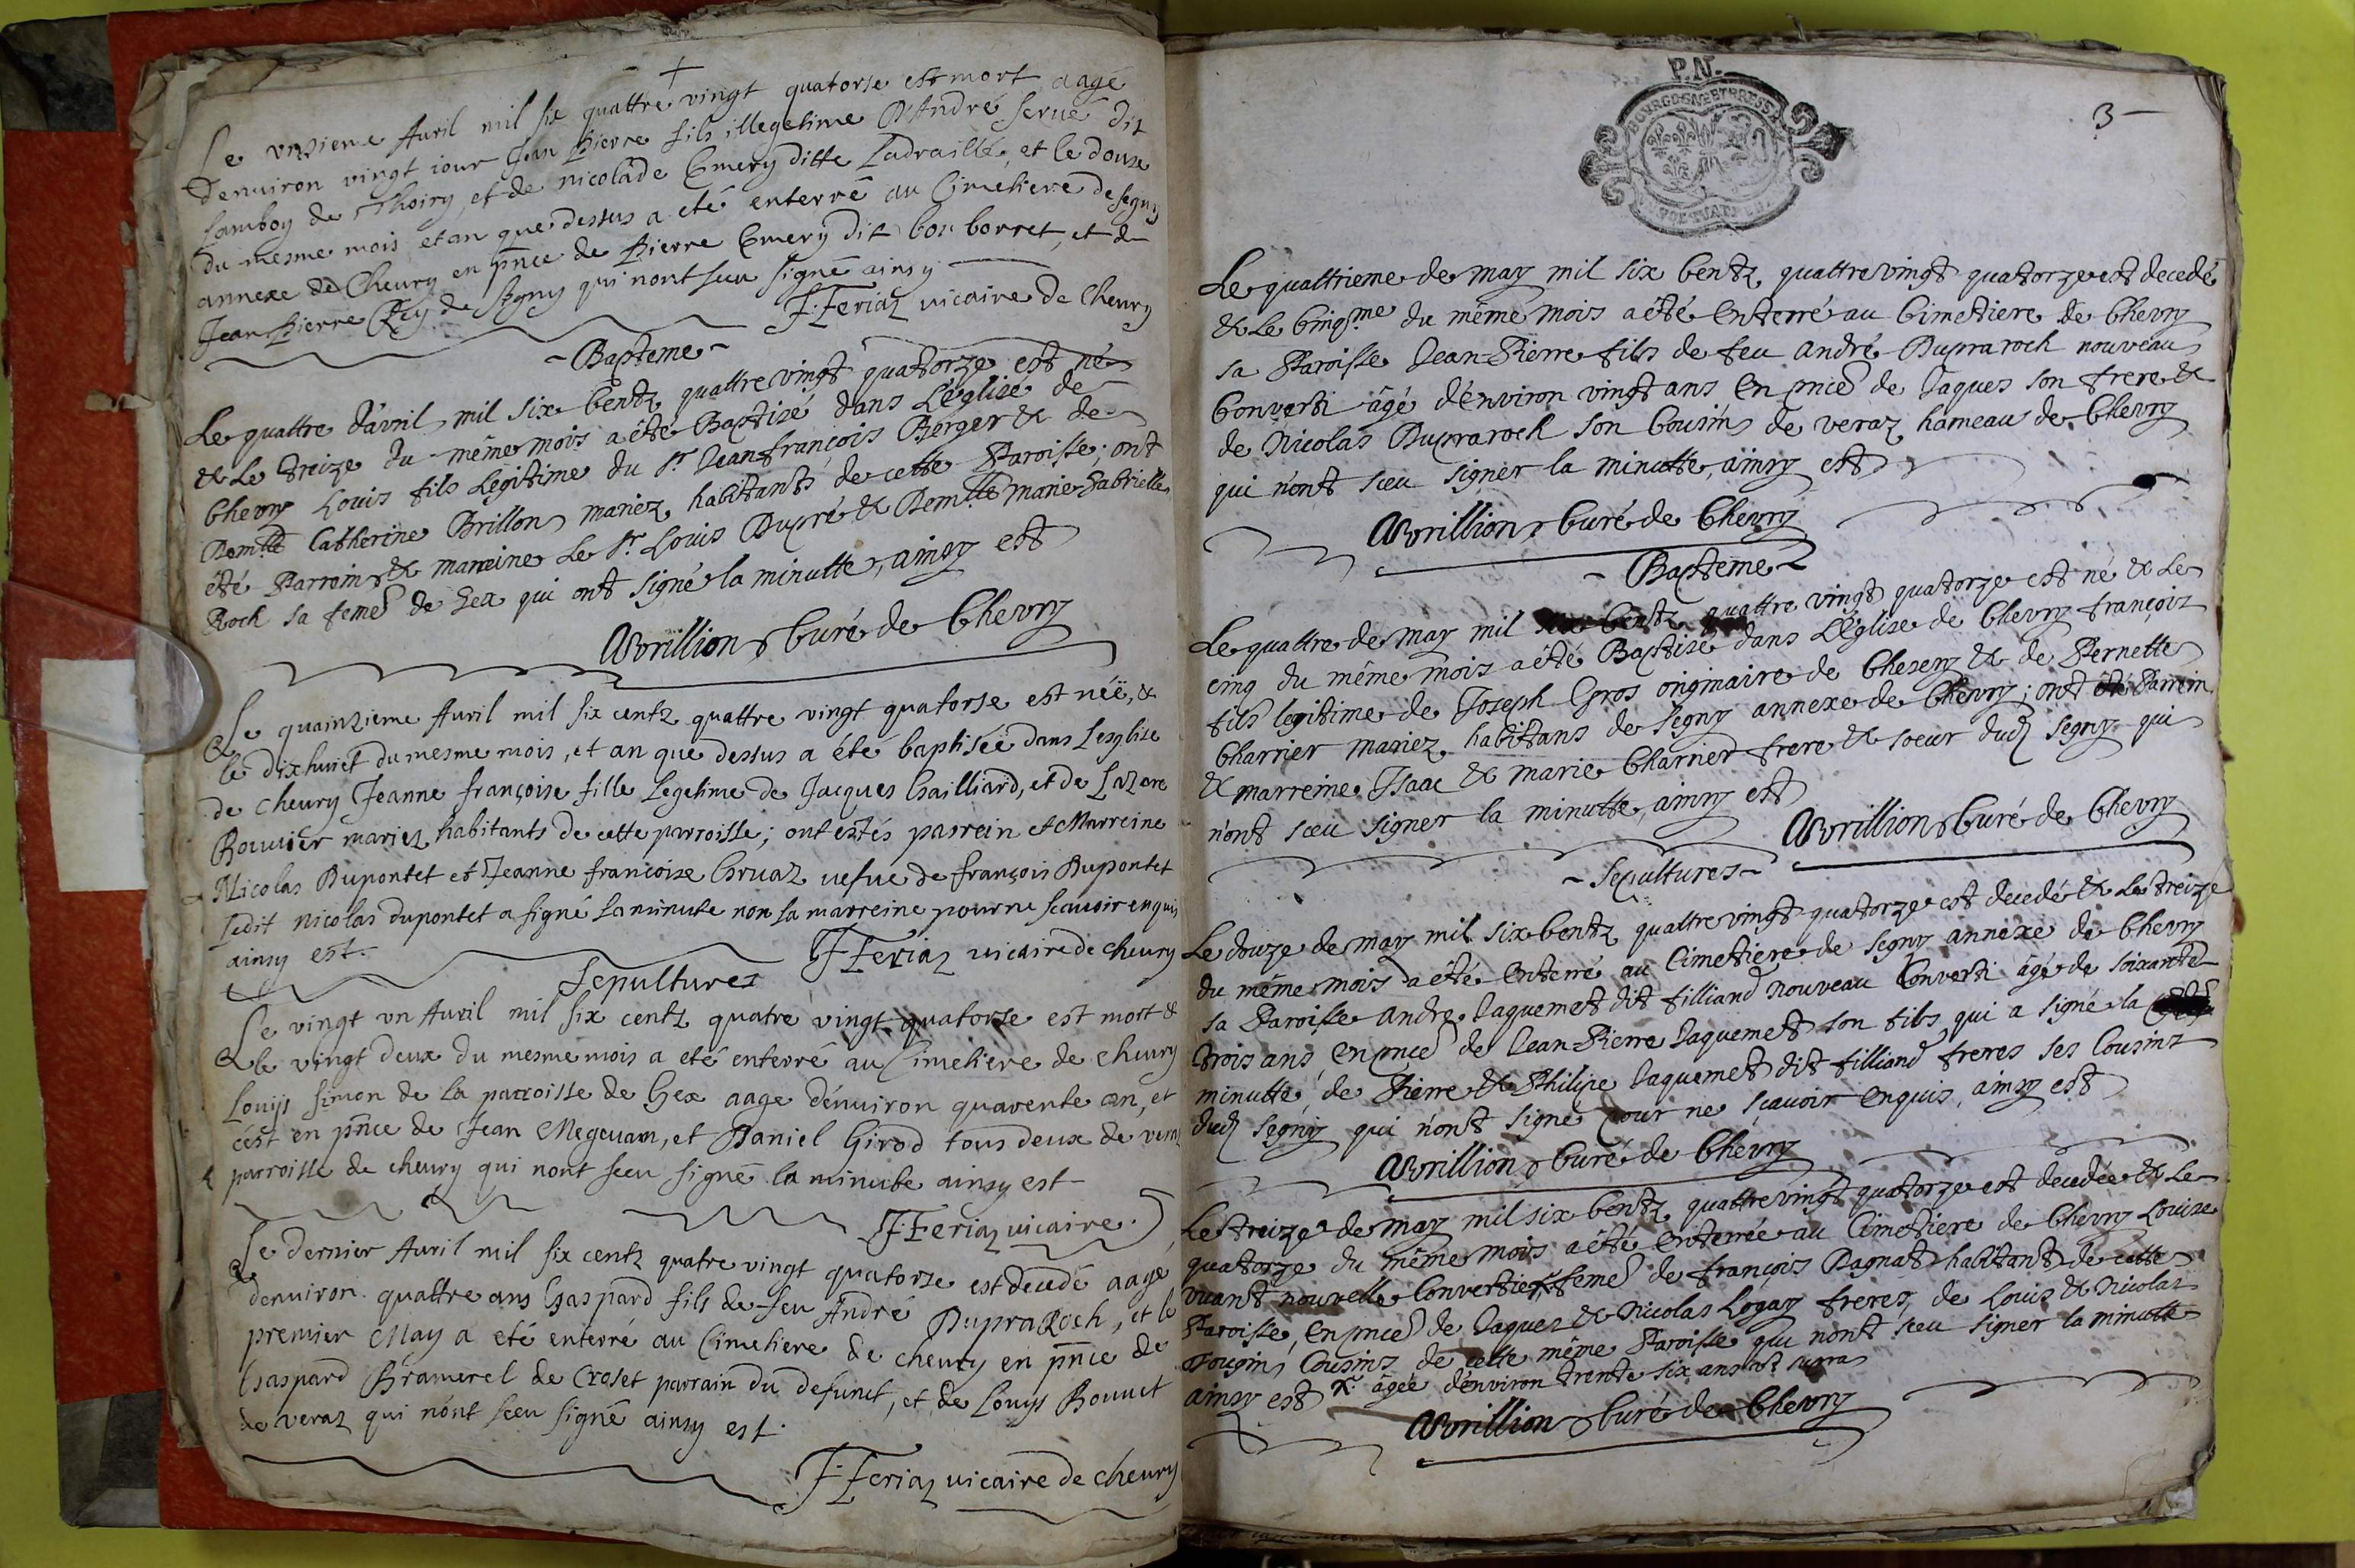 Le unzieme Auril mil six quattre vingt quatorse est mort aagé
d'enuiron vingt iour Jean Pierre fils illegetime D'André serué dit
Lamboy de Thoiry, et de nicolade Emery ditte Ladraillé, et le douze
du mesme mois et an que dessus a eté enterré au Cimetiere de segny
annexe de Cheury en pnce de Pierre Emery dit bon borret, et de
Jean Pierre Rey de segny qui nont sceu signé ainsy
F: Feriaz uicaire de Cheury
- Bapteme -
Le quattre d'avril mil six centz quattre vingt quatorze est né
& Le treize du même mois a été Baptisé dans L'église de
Chevry Louis fils Légitime du Sr Jean françois Berger & de
Demlle Catherine Brillon mariez habitants de cette Paroisse; ont
été Parrein & marreine Le Sr Louis Dupré & Demlle marie Gabrielle
Roch sa feme de Gex qui ont signé la minutte, ainsy est
Avrillion Curé de Chevry
Le quainzieme Auril mil six centz quattre vingt quatorse est néë, &
le dixhuict du mesme mois, et an que dessus a été baptiséë dans L'esglise
de cheury Jeanne françoise fille Legetime de Jacques Gailliard, et de Lazare
Bouuier mariez habitants de cette parroisse; ont estés parrein et Marreine
Nicolas Dupontet et Jeanne francoise Gruaz uefue de françois Dupontet
Ledit nicolas dupontet a signé la minute non la marreine pour ne scauoir enquis
ainsy est.
F Feriaz uicaire de cheury
Sepultures
Le vingt vn Auril mil six centz quatre vingt quatorse est mort &
le vingt deux du mesme mois a eté enterré au Cimetiere de cheury
Louys simon de la parroisse de Gex aage d'enuiron quarente an, et
c'est en pnce de Jean Megeuam, et Daniel Girod tous deux de veraz
parroisse de cheury qui nont sceu signé la minute ainsy est
F: Feriaz uicaire.
Le dernier Auril mil six centz quatre vingt quatorse est decedé aagé
denuiron quattre ans Gaspard fils de feu André DupraRoch, et le
premier May a eté enterré au Cimetiere de cheury en pnce de
Gaspard Bramerel de Croset parrain du defunct, et de Louys Bouuet
de veraz qui n'ont sceu signé ainsy est.
F: Feriaz uicaire de cheury
P.N.
BOURGOGNE ET BRESSE
3
Le quattrieme de may mil six centz quattre vingt quatorze est decedé
& Le cinqme du même mois a été enterré au Cimetiere de Chevry
sa Paroisse Jean-Pierre fils de feu André Dupraroch nouveau
Converti âgé d'environ vingt ans en pnce de Jaques son frere &
de Nicolas Dupraroch son cousin de veraz hameau de Chevry
qui n'ont sceu signer la minutte, ainsy est
Avrillion Curé de Chevry
- Bapteme -
Le quattre de may mil six centz quattre vingt quatorze est né & Le
cinq du même mois a été Baptisé dans L'église de Chevry françois
fils legitime de Joseph Gros originaire de Chesery & de Pernette
Charrier mariez habitans de segny annexe de Chevry; ont été Parrein
& marreine Isaac & marie Charrier frere & soeur dud segny qui
n'ont sceu signer la minutte, ainsy est
Avrillion Curé de Chevry
- Sepultures -
Le douze de may mil six centz quattre vingt quatorze est decedé & Le treize
du même mois a été enterré au Cimetiere de segny annexe de Chevry
sa Paroisse andre Jaquemet dit filliand nouveau Converti âgé de soixante
trois ans, en pnce de Jean Pierre Jaquemet son fils qui a signé la
minutte, de Pierre & Philipe Jaquemet dit filliand freres ses Cousins
dud segny qui n'ont signé pour ne sçavoir enquis, ainsy est
Avrillion Curé de Chevry
Le treize de may mil six centz quattre vingt quatorze est decedée & Le
quatorze du même mois a été enterrée au Cimetiere de Chevry Louise
vuant nouvelle Convertie feme de françois Pagnat habitant de cette
Paroisse, en pnce de Jaques & Nicolas Logay freres, de Louis & Nicolas
Tougin, Cousins de cette même Paroisse qui n'ont sceu signer la minutte
ainsy est x âgée d'environ trente six ans ut supra
Avrillion Curé de Chevry